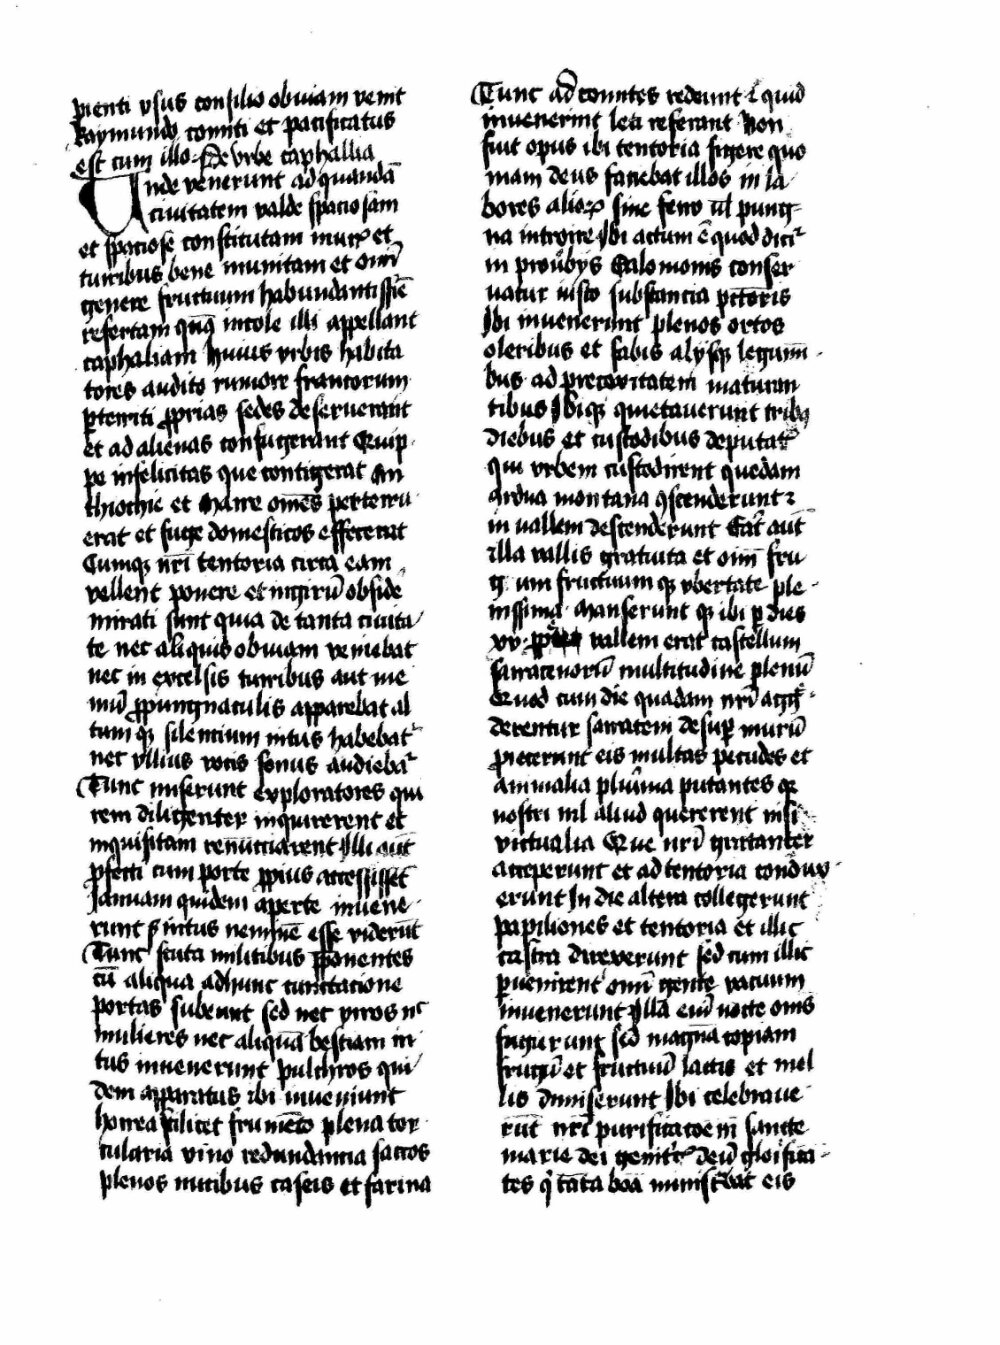 pienti vsus consilio obuiam venit
Raymundo comiti et pacificatus
est cum illo De vrbe caphallia
Inde venerunt ad quandā
ciuitatem valde spaciosam
et spaciose constitutam mur et
turribus bene munitam et om̄i
genere fructuum habundantissīe
refertam quā incole illi appellant
caphaliam Huius vrbis habita
tores audito rumore francorum
pterriti pprias sedes deseruerant
et ad alienas confugerant Quip
pe infelicitas que contigerat An
thiochie et Marre om̄es perterru
erat et fuge domesticos effecerat
Cumq nr̄i tentoria circa eam
vellent ponere et in girū obside
mirati sunt quia de tanta ciuita
te nec aliquis obuiam veniebat
nec in excelsis turribus aut me
niū ppungnaculis apparebat al
tum q silencium intus habebat
nec vllius vocis sonus audieba
Tunc miserunt exploratores qui
rem diligenter inquirerent et
inquisitam renūnciarent Illi aūt
pfecti cum porte ppius accessisset
Januam quidem aperte inuene
runt s intus neminē esse viderūt
Tunc scuta militibus pponentes
cū aliqua adhunc cunctacione
portas subeunt sed nec viros nc
mulieres nec aliquā bestiam in
tus inuenerunt pulchros qui
dem apparatus ibi inueniunt
horrea scilicet frumēto plena tor
cularia vino redundancia saccos
plenos nucibus caseis et farina
Tunc ad comites redeunt ⁊ quid
inuenerint lea referant Non
fuit opus ibi tentoria figere quo
niam deus faciebat illos in la
bores alior sine ferro ul pung
na introire Ibi actum ē quod dici
in proubijs Salomonis conser
uatur iusto substancia pccoris
Ibi inuenerunt plenos ortos
oleribus et fabis alijsq legum
bus ad precoxitatem maturan
tibus Ibiq quieuerunt tribu
diebus et custodibus deputat
qui vrbem custodirent quedam
ardua montana 9scenderunt ⁊
in vallem descenderunt Erat aut
illa vallis gratuita et oim̄ fru
g um fructuum q vbertate ple
nissima Manserunt q ibi p dies
xv vallem erat castellum
sarracenorū multitudine plenū
Quod cum die quadam nr̄i agg
derentur sarraceni desup murū
piecerunt eis multas pecudes et
animalia plurima putantes q
nostri nil aliud quererent nisi
victualia Que nr̄i gratanter
acceperunt et ad tentoria condux
erunt In die altera collegerunt
papiliones et tentoria et illic
castra direxerunt sed cum illic
puenirent om̄i gente vacuum
inuenerunt Illa enī nocte om̄s
fugerunt sed magnā copiam
frugū et fructuū lactis et mel
lis dimiserunt Ibi celebraue
rūt nr̄i purificacoēm sancte
marie dei genit deū glorifica
tes q tāta boā ministrabat eis